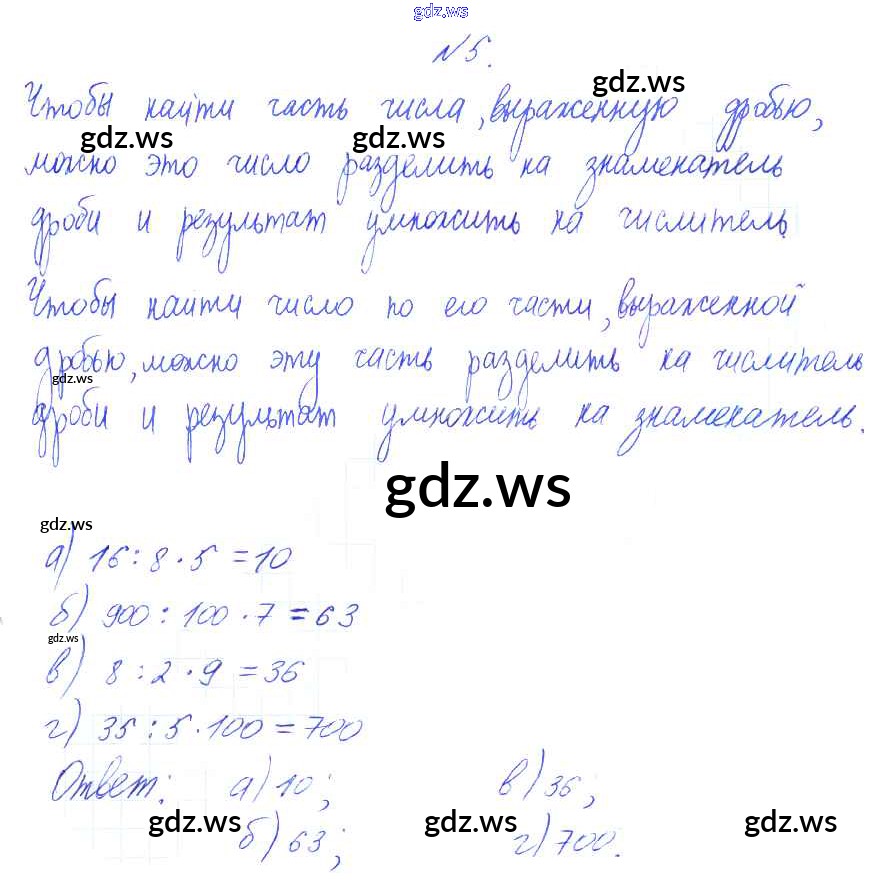 gdz.ws
№5.
gdz.ws
Чтобы найти часть числа, выраженную дробью,
gdz.ws gdz.ws
можно это число разделить на знаменатель
дроби и результат умножить на числитель.
Чтобы найти число по его части, выраженной
дробью, можно эту часть разделить на числитель
gdz.ws
дроби и результат умножить на знаменатель.
gdz.ws
gdz.ws
а) 16:8·5=10
б) 900:100·7=63
gdz.ws
в) 8:2·9=36
г) 35:5·100=700
Ответ: а) 10; в) 36;
gdz.ws gdz.ws gdz.ws
б) 63; г) 700.